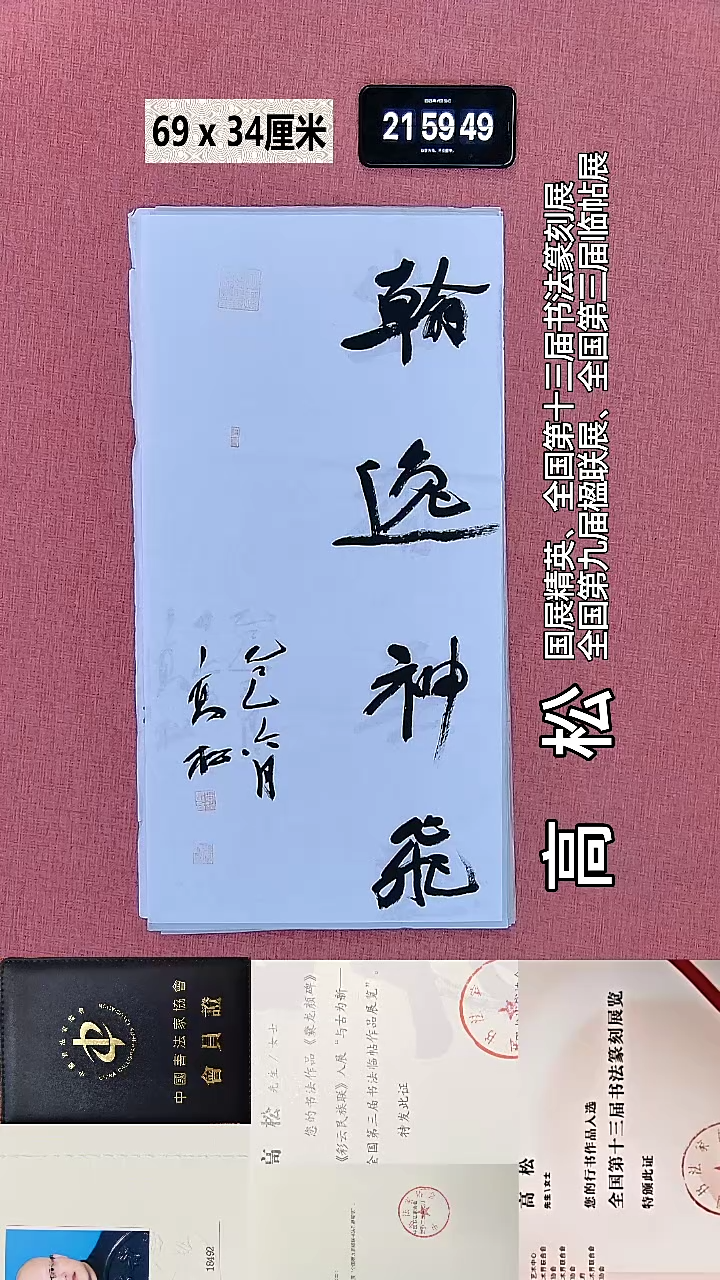 69 x 34厘米
21 59 49
翰逸神飞
乙巳六月
高松
国展精英、全国第十三届书法篆刻展
全国第九届楹联展、全国第三届临帖展
高 松
中國書法家協會
會員證
高 松 先生/女士
您的书法作品《爨龙颜碑》
《彩云民族联》入展“与古为新——
全国第三届书法临帖作品展览”。
特发此证
18492
高 松
先生\女士
您的行书作品入选
全国第十三届书法篆刻展览
特颁此证